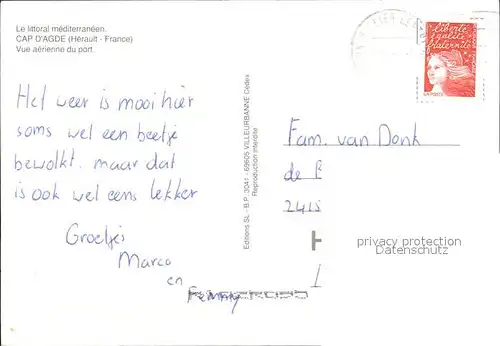 Le littoral méditerranéen.
CAP D'AGDE (Hérault - France)
Vue aérienne du port.
liberté
égalité
fraternité
LA POSTE
Het weer is mooi hier
soms wel een beetje
bewolkt. maar dat
is ook wel eens lekker
Groetjes
Marco
en
Femmy
Editions SL - B.P. 3041 - 69605 VILLEURBANNE Cedex
Reproduction interdite
Fam. van Donk
de
2415
H
privacy protection
Datenschutz